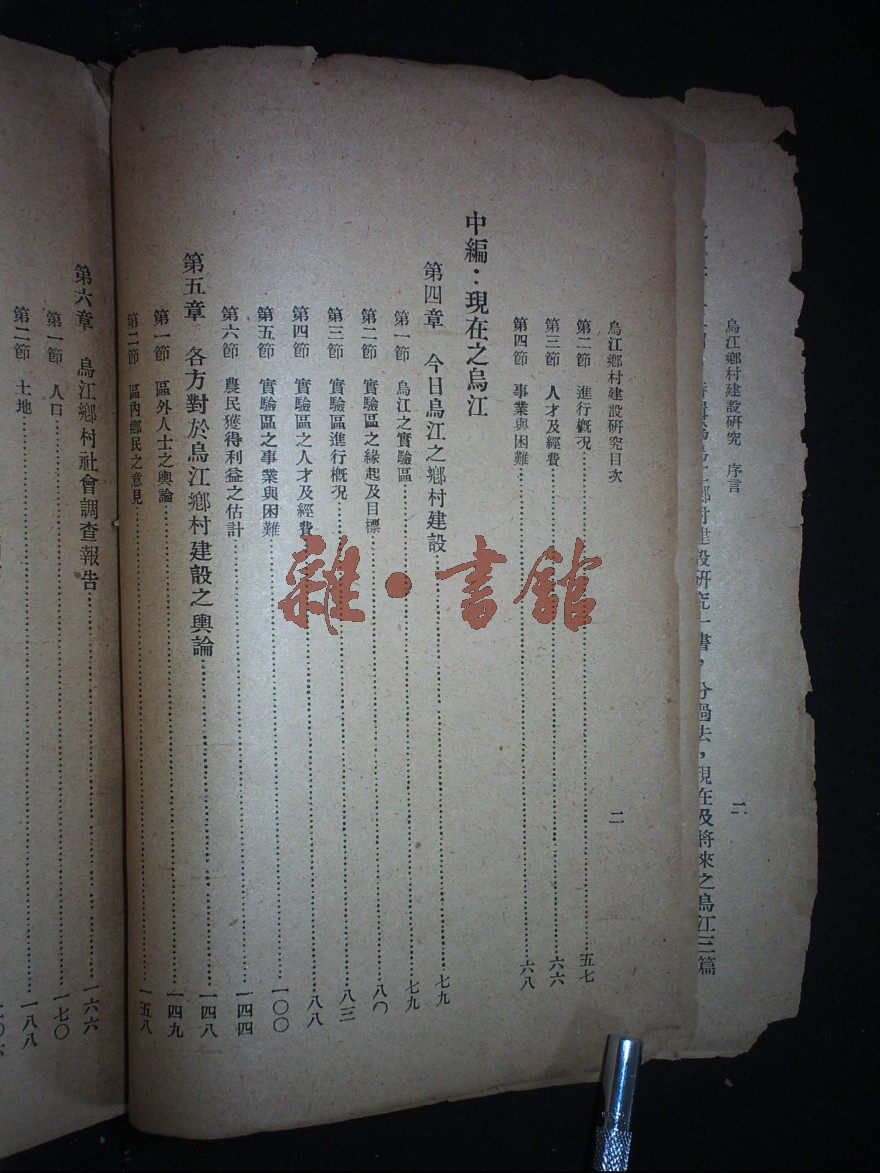 烏江鄉村建設研究 序言 二
鄉村建設研究一書，分過去，現在及將來之烏江三篇
烏江鄉村建設研究目次 二
第二節 進行概况 五七
第三節 人才及經費 六六
第四節 事業與困難 六八
中編：現在之烏江
第四章 今日烏江之鄉村建設 七九
第一節 烏江之實驗區 七九
第二節 實驗區之緣起及目標 八〇
第三節 實驗區進行概况 八三
第四節 實驗區之人才及經費 八八
第五節 實驗區之事業與困難 一〇〇
第六節 農民獲得利益之估計 一四四
第五章 各方對於烏江鄉村建設之輿論 一四八
第一節 區外人士之輿論 一四九
第二節 區內鄉民之意見 一五八
第六章 烏江鄉村社會調查報告 一六六
第一節 人口 一七〇
第二節 土地 一八八
雜·書館